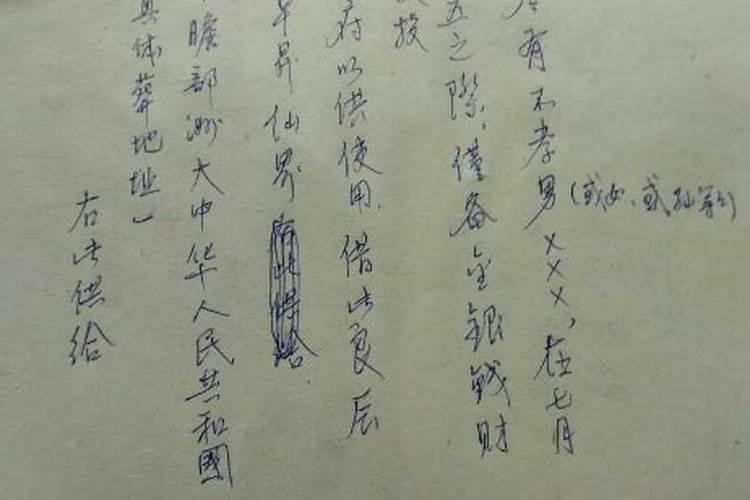 有不孝男(或女、或孙等)×××，在七月
五之际，仅备金银钱财
投
府以供使用，借此良辰
早昇仙界
瞻部洲大中华人民共和國
具体葬地址)
右此供给